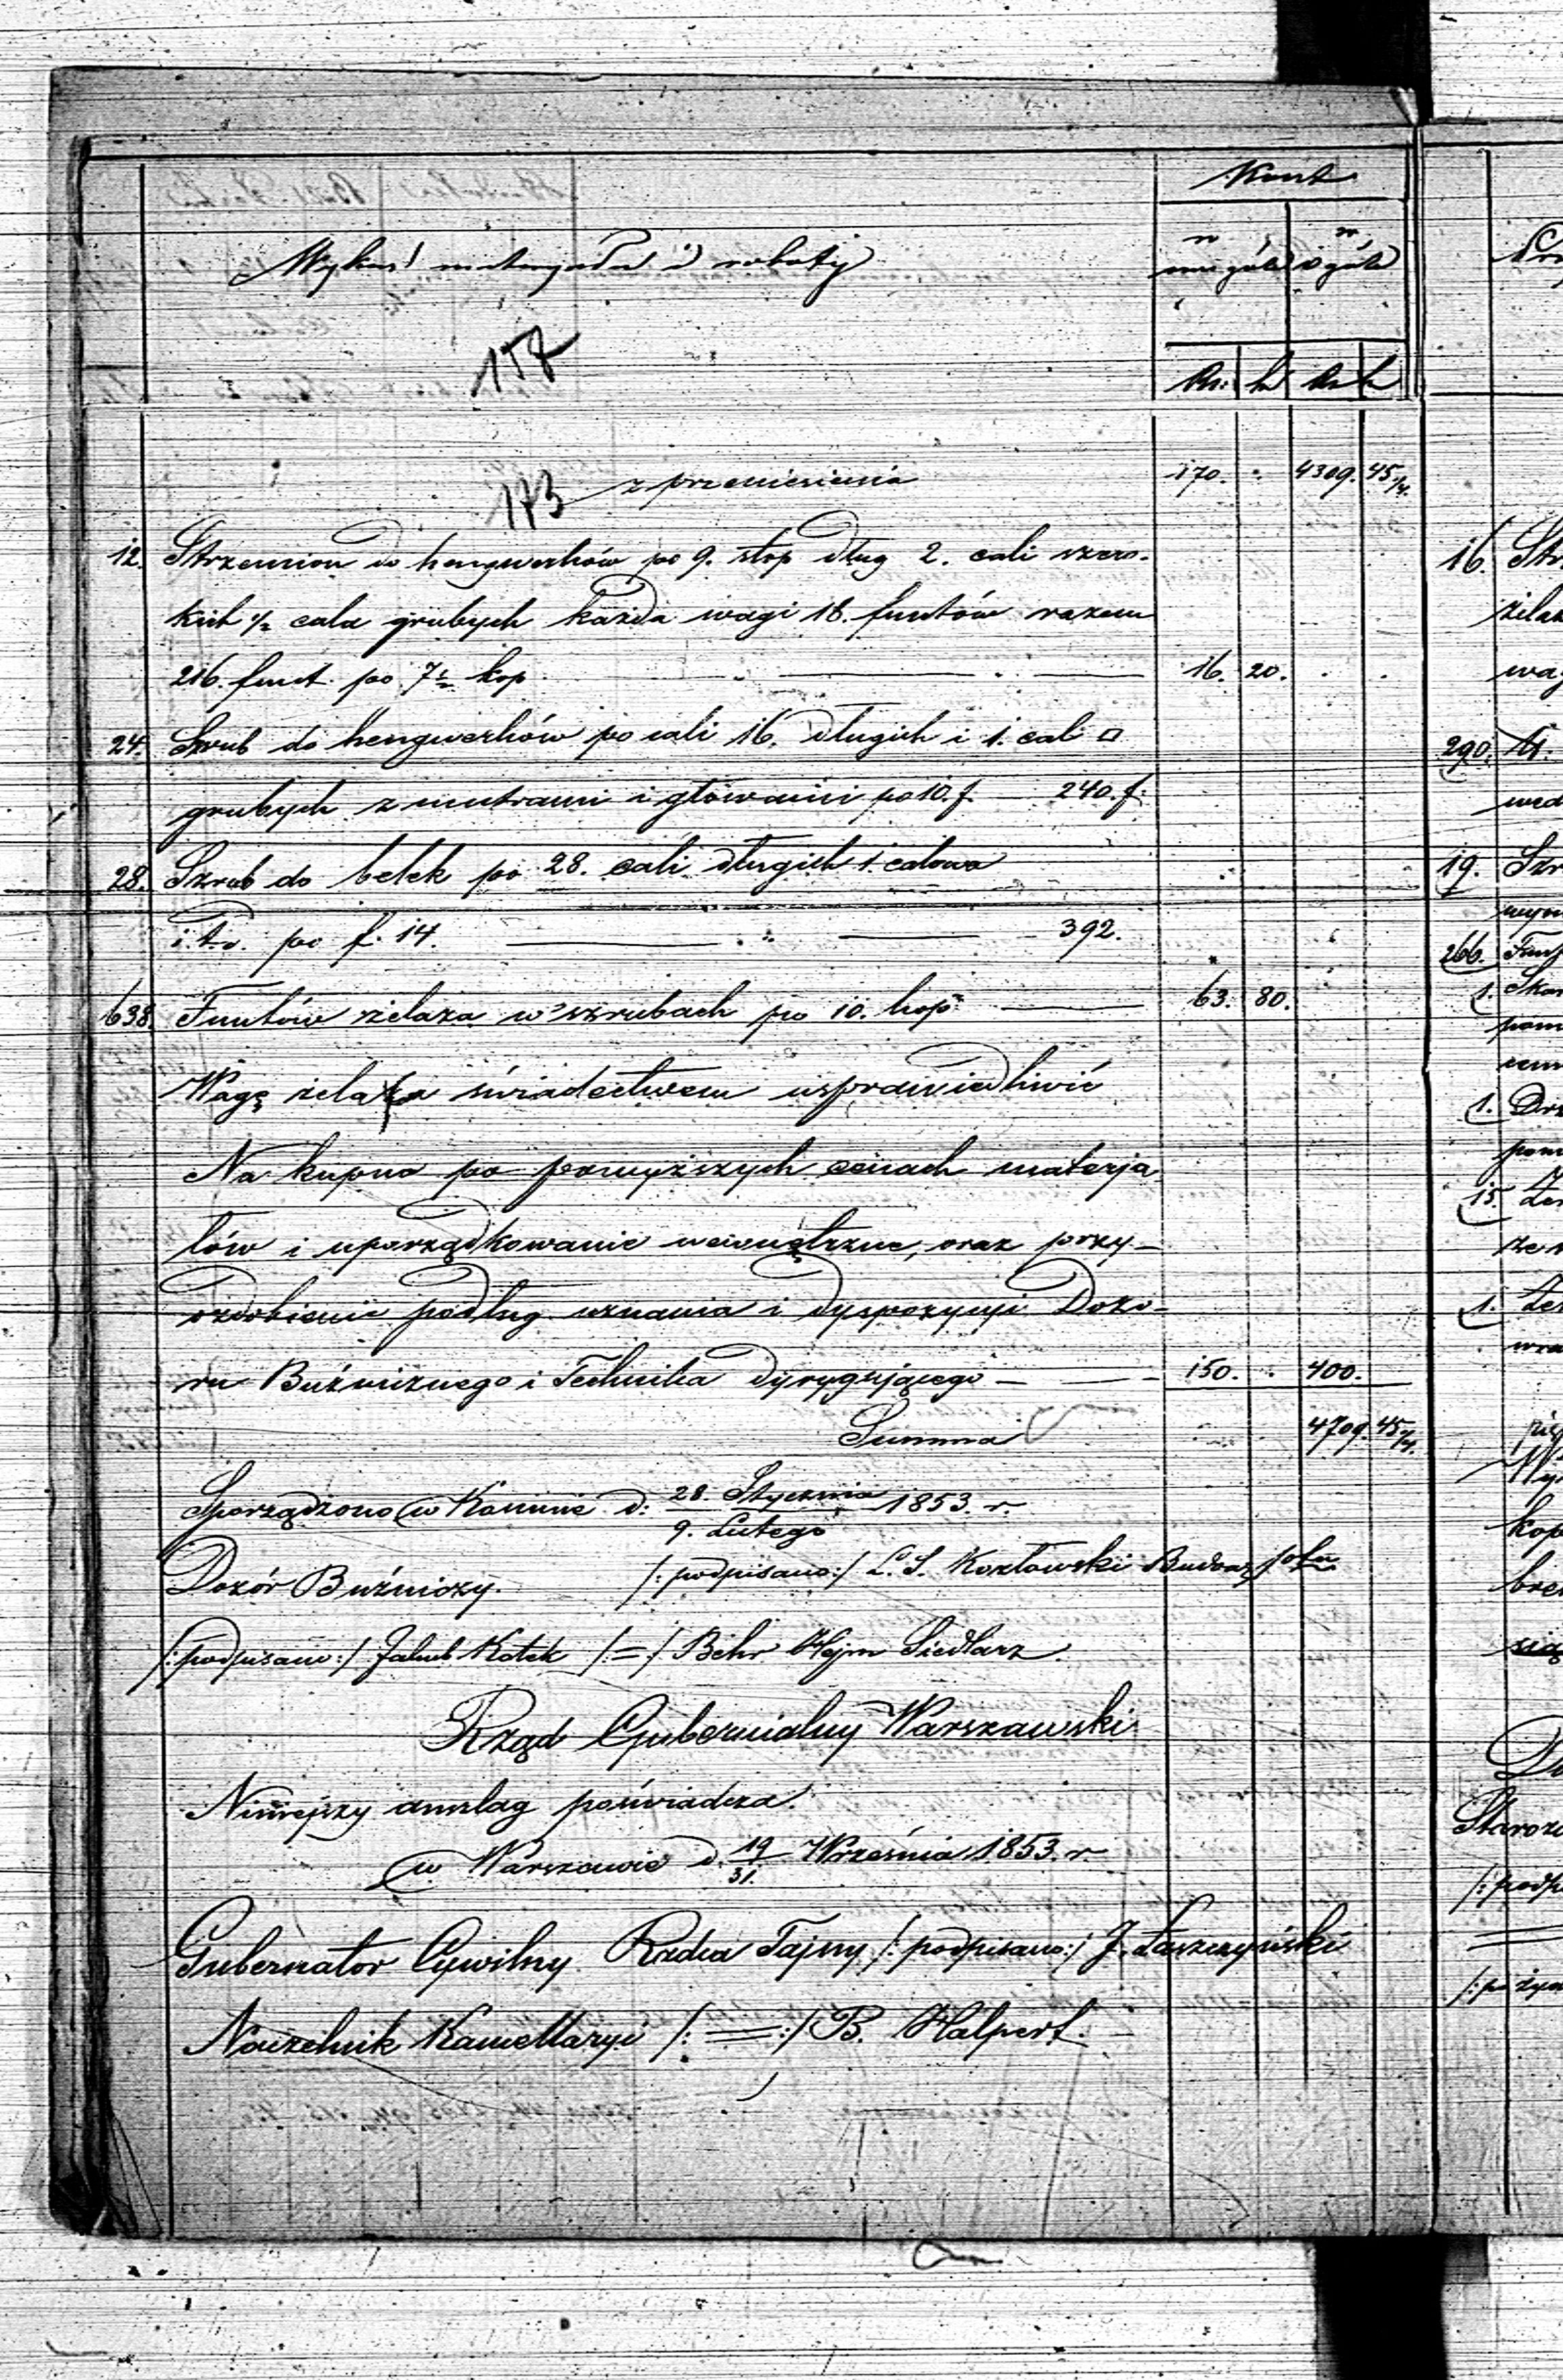 Koszt
Wykaz materyału i roboty
w szczególe w ogóle
157
Rs. k Rs k
173 z przeniesienia 170. " 4309. 45/4.
12. Strzemion do hengwerków po 9. stóp dług 2. cali szero-
kich ½ cala grubych każda wagi 18. funtów razem
216. funt. po 7½ kop. 16. 20.
24. Szrub do hengwerków po cali 16. długich i 1. cali □
grubych z mutrami i głowami po 10. f. 240. f.
28. Szrub do belek po 28. cali długich 1. calowa
i t. d. po f. 14. 392.
638. Funtów żelaza w szrubach po 10. kop. 63. 80.
Wagę żelaza świadectwem usprawiedliwić
Na kupno po powyższych cenach materja-
łów i uporządkowanie wewnętrzne, oraz przy-
ozdobienie podług uznania i dyspozycyi Dozo-
ru Bużnicznego i Technika dyrygującego 150. 400.
Summa 4709. 45/4.
Sporządzono w Koninie d: 28. Stycznia / 9. Lutego 1853. r.
Dozór Bużniczy. /: podpisano :/ L. S. Kozłowski Budow.
/: podpisano :/ Jakub Kotek /:=:/ Behr Hejm Siedlarz.
Rząd Gubernialny Warszawski
Niniejszy anszlag poświadcza.
w Warszawie d. 19/31. Września 1853. r.
Gubernator Cywilny Radca Tajny /: podpisano :/ J. Łaszczyński
Naczelnik Kancellaryi /:=:/ B. Halpert.
16.
290.
19.
266.
1.
1.
15.
1.